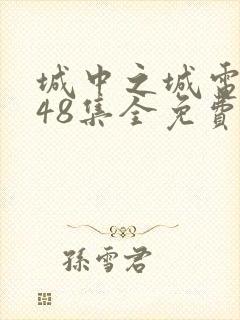 城中之城電
48集全免費
孫雪君